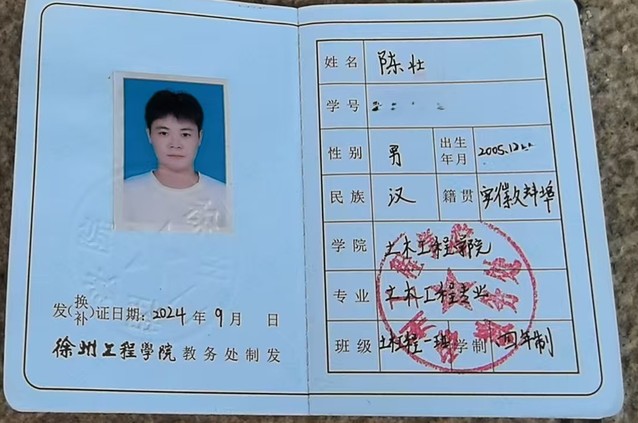 发(换补)证日期：2024年9月 日
徐州工程学院教务处制发
姓名 陈壮
学号
性别 男 出生年月 2005.12
民族 汉 籍贯 安徽蚌埠
学院 土木工程学院
专业 土木工程专业
班级 土木工程一班 学制 四年制